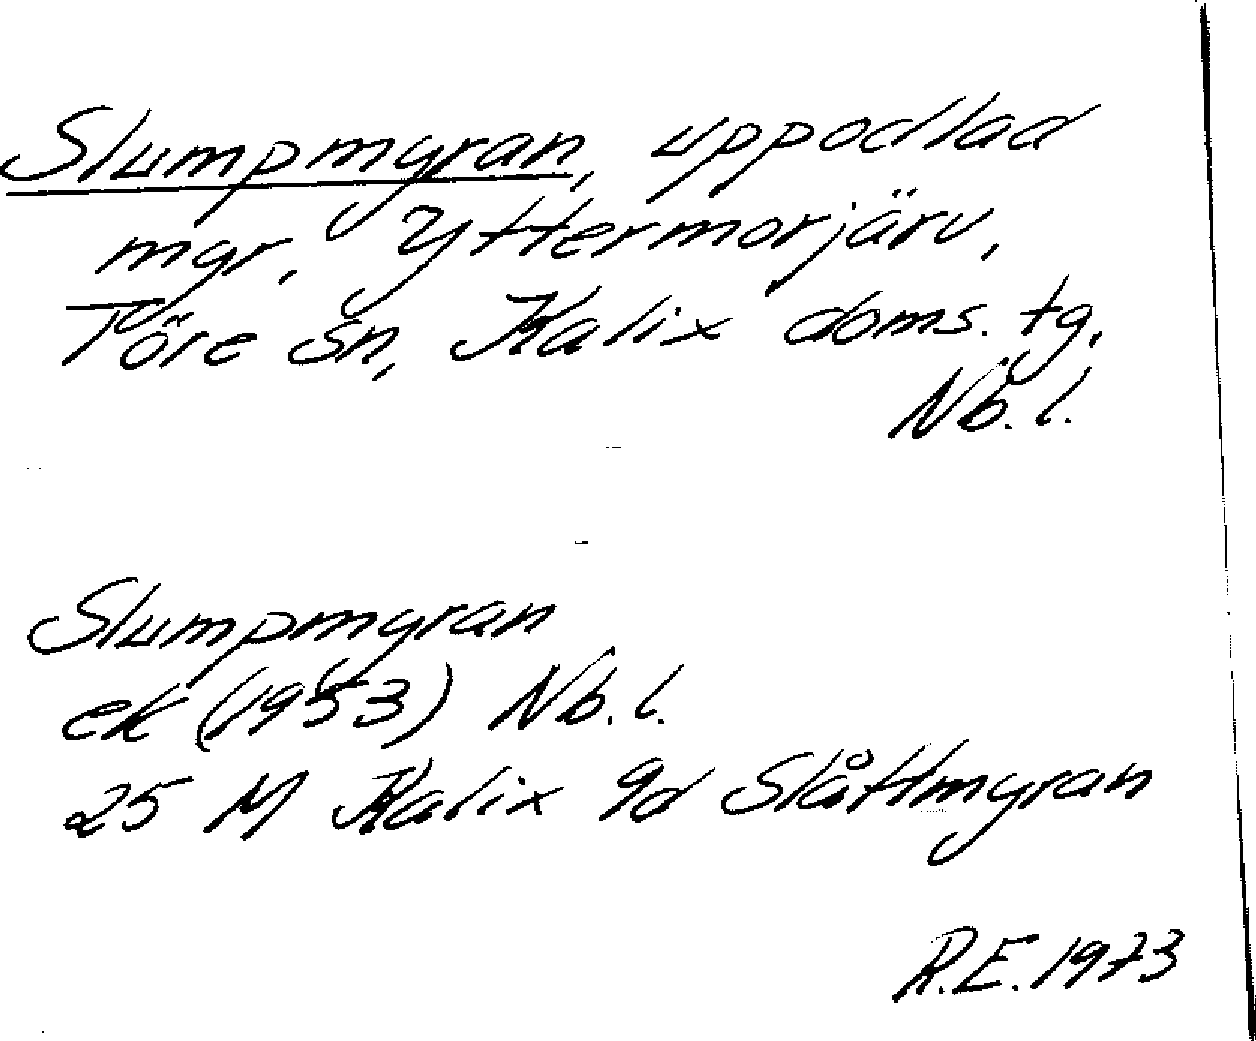 Slumpmyran, uppodlad
myr, Yttermorjärv,
Töre sn, Kalix doms. tg,
Nb. l.
Slumpmyran
ek (1953) Nb. l.
25 M Kalix 9d Slåttmyran
R.E. 1973